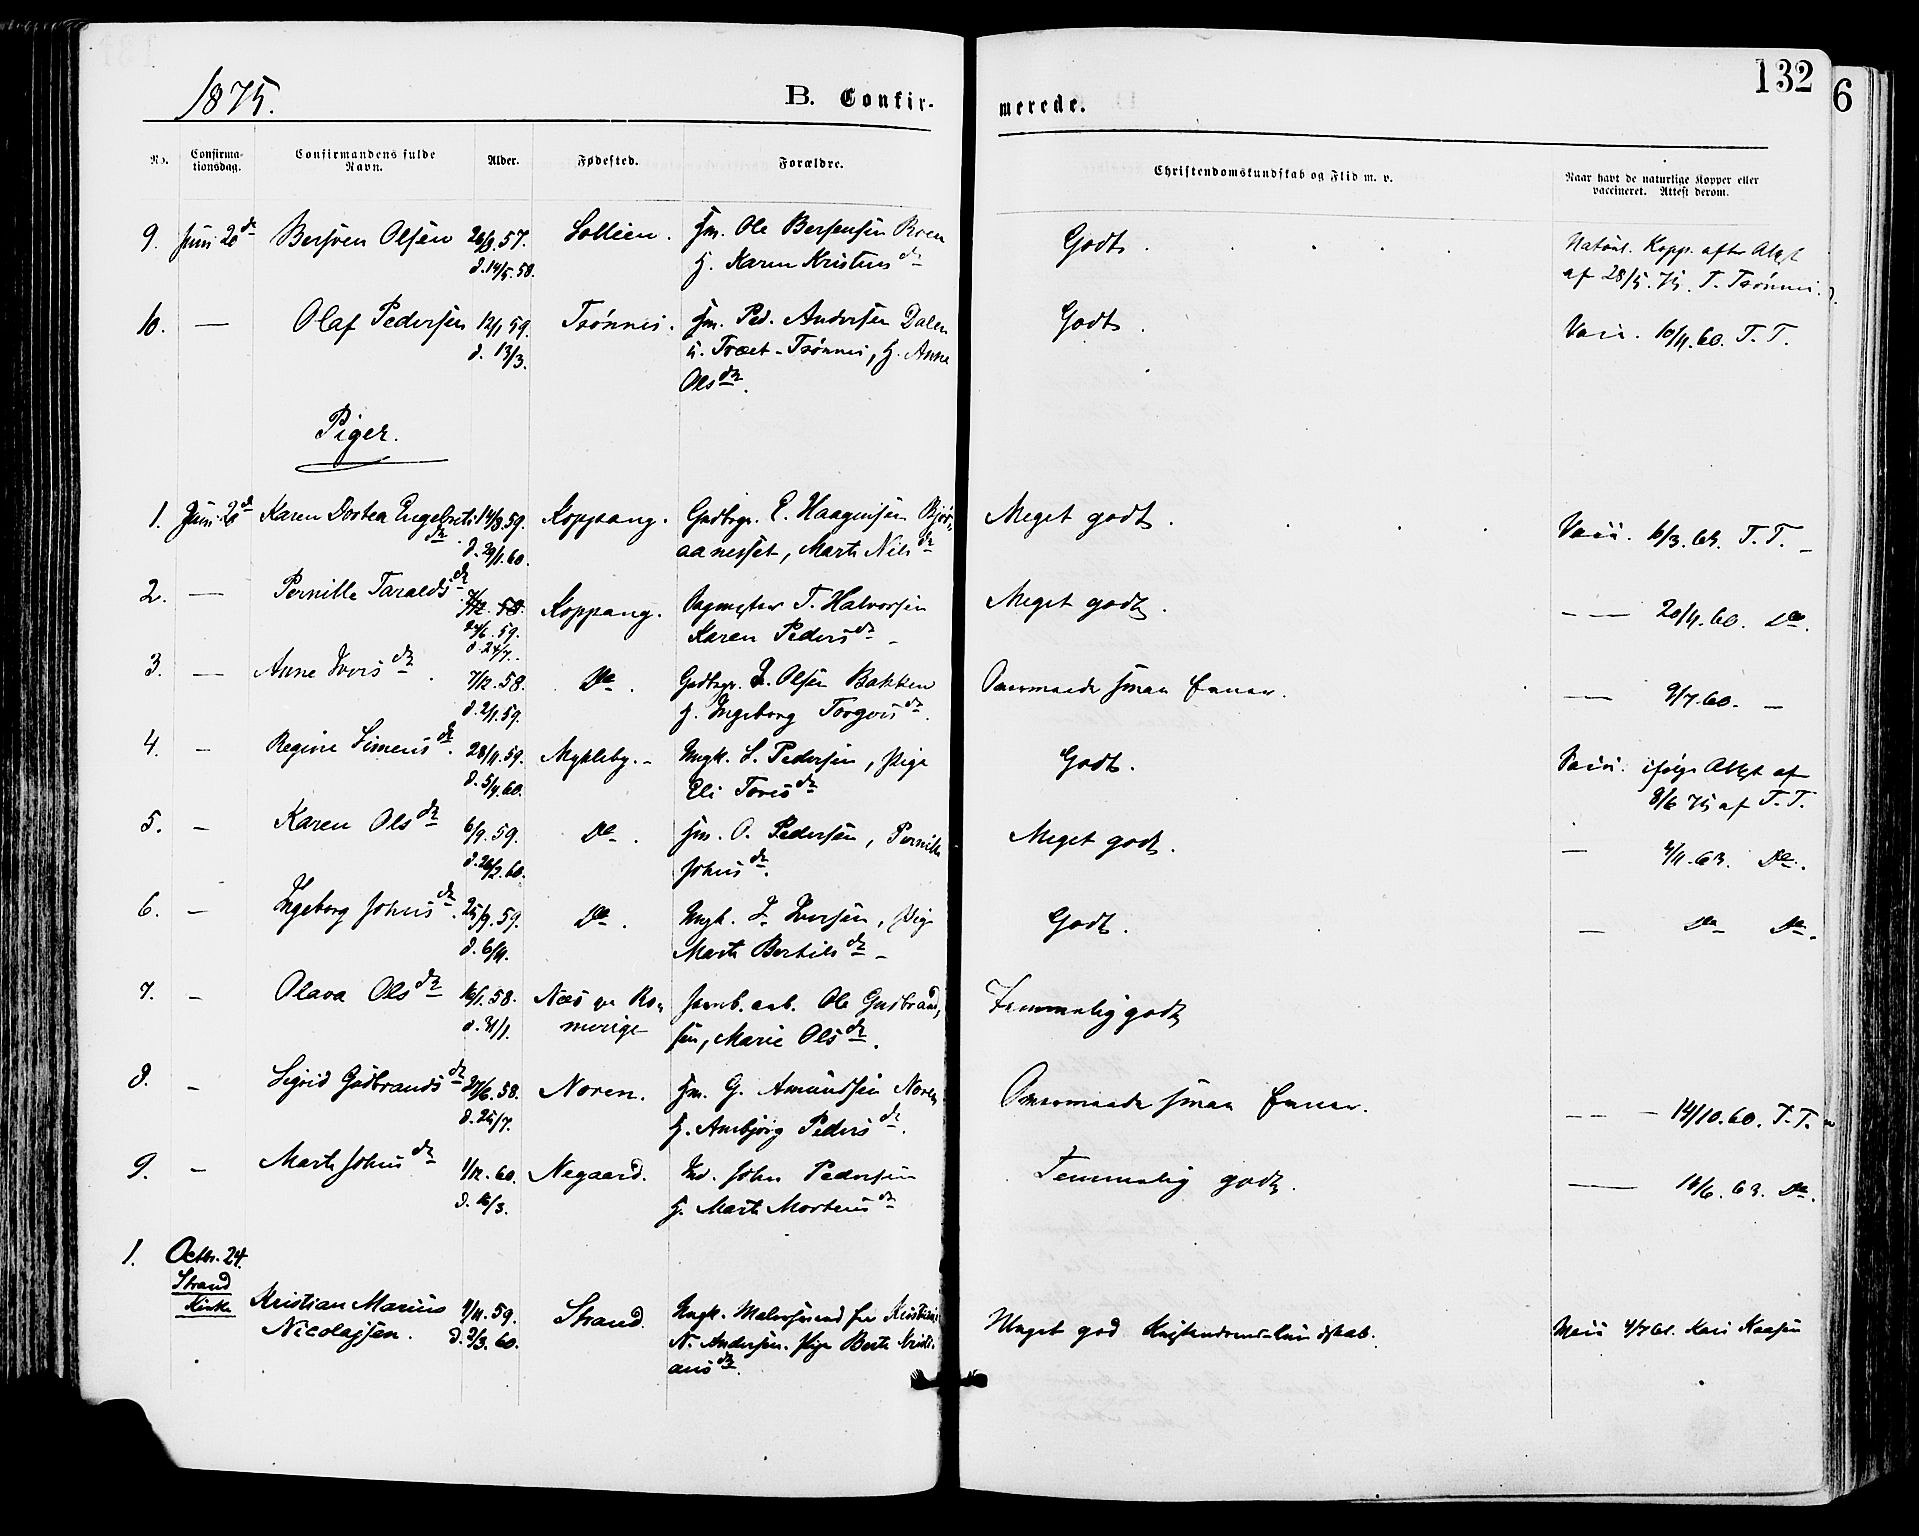 132
6
1875.
B. Confir-
merede.
No.
Confirma-
tionsdag.
Confirmandens fulde
Navn.
Alder.
Fødested.
Forældre.
Christendomskundskab og Flid m. v.
Naar havt de naturlige Kopper eller
vaccineret. Attest derom.
9. Juni 20de Bersven Olsen 26/9. 57. Sollien. Gm. Ole Bersvensen Roen Godt. Naturl. Kopp. efter Attest
d. 14/5. 58. H. Karen Kristens dr af 28/5. 75. T. Trønnes.
10. — Olaf Pedersen 12/1 59. Trønnes. Gm. Ped. Andersen Dalen Godt. Vacc. 10/11. 60. T. T.
d. 13/3. u. Træet-Trønnes, H. Anne
Ols dr.
Piger.
1. Juni 20de Karen Dortea Engebrets 14/8. 59. Koppang. Gadbrgr. E. Haagensen Bjør, Meget godt. Vacc. 6/3. 63. T. T. —
dr. d. 29/1. 60. aanesset, Marte Nils dr
2. — Pernille Taralds dr 7/12. 58. Koppang. T. Halvorsen Meget godt. — — 20/11. 60. Do.
24/6. 59. Karen Peders dr —
d. 24/7.
3. — Anne Ivers dr. 7/12. 58. Do. Gadbrgr. I. Olsen Bakken — 9/7. 60. —
d. 2/1. 59. H. Ingeborg Torgers dr.
4. — Regine Simens dr. 28/11. 59. Mykleby. — Ungk. S. Pedersen, Pige Godt. Vacc. ifølge Attest af
d. 5/4. 60. Eli Tores dr 8/6 75 af T. T.
5. — Karen Ols dr 6/9. 59. Do. Gm. O. Pedersen, Pernille Meget godt. — 4/11. 63. Do.
d. 26/2. 60. Johns dr.
6. — Ingeborg Johns dr. 25/9. 59. Do. Ungk. J. Iversen, Pige Godt. — Do Do.
d. 6/11. Marte Bertils dr —
7. — Olava Ols dr 16/1. 58. Næs paa Ro, Jernb. arb. Ole Gudbrand, Temmelig godt
d. 31/1. merige sen, Marie Ols dr.
8. — Sigrid Gudbrands dr 27/6. 58. Noren. Gm. G. Amundsen Noren — — — 14/10. 60. T. T.
d. 25/7. H. Ambjørg Peders dr.
9. — Marte Johns dr 1/12. 60. Negaard. Ind. John Pedersen Temmelig godt. — 16/6. 63. Do.
d. 16/3. H. Marte Mortens dr
1. Octbr. 24.
Strand
Kirke Kristian Marius 9/11. 59. Strand. Ungk. fra Kristiania Meget god Kristendomskundskab. Vacc 4/7 61. Kari Kaasen
Nicolajsen. d. 2/3. 60. N. Andersen. Pige Berte Kristi-
ans dr.